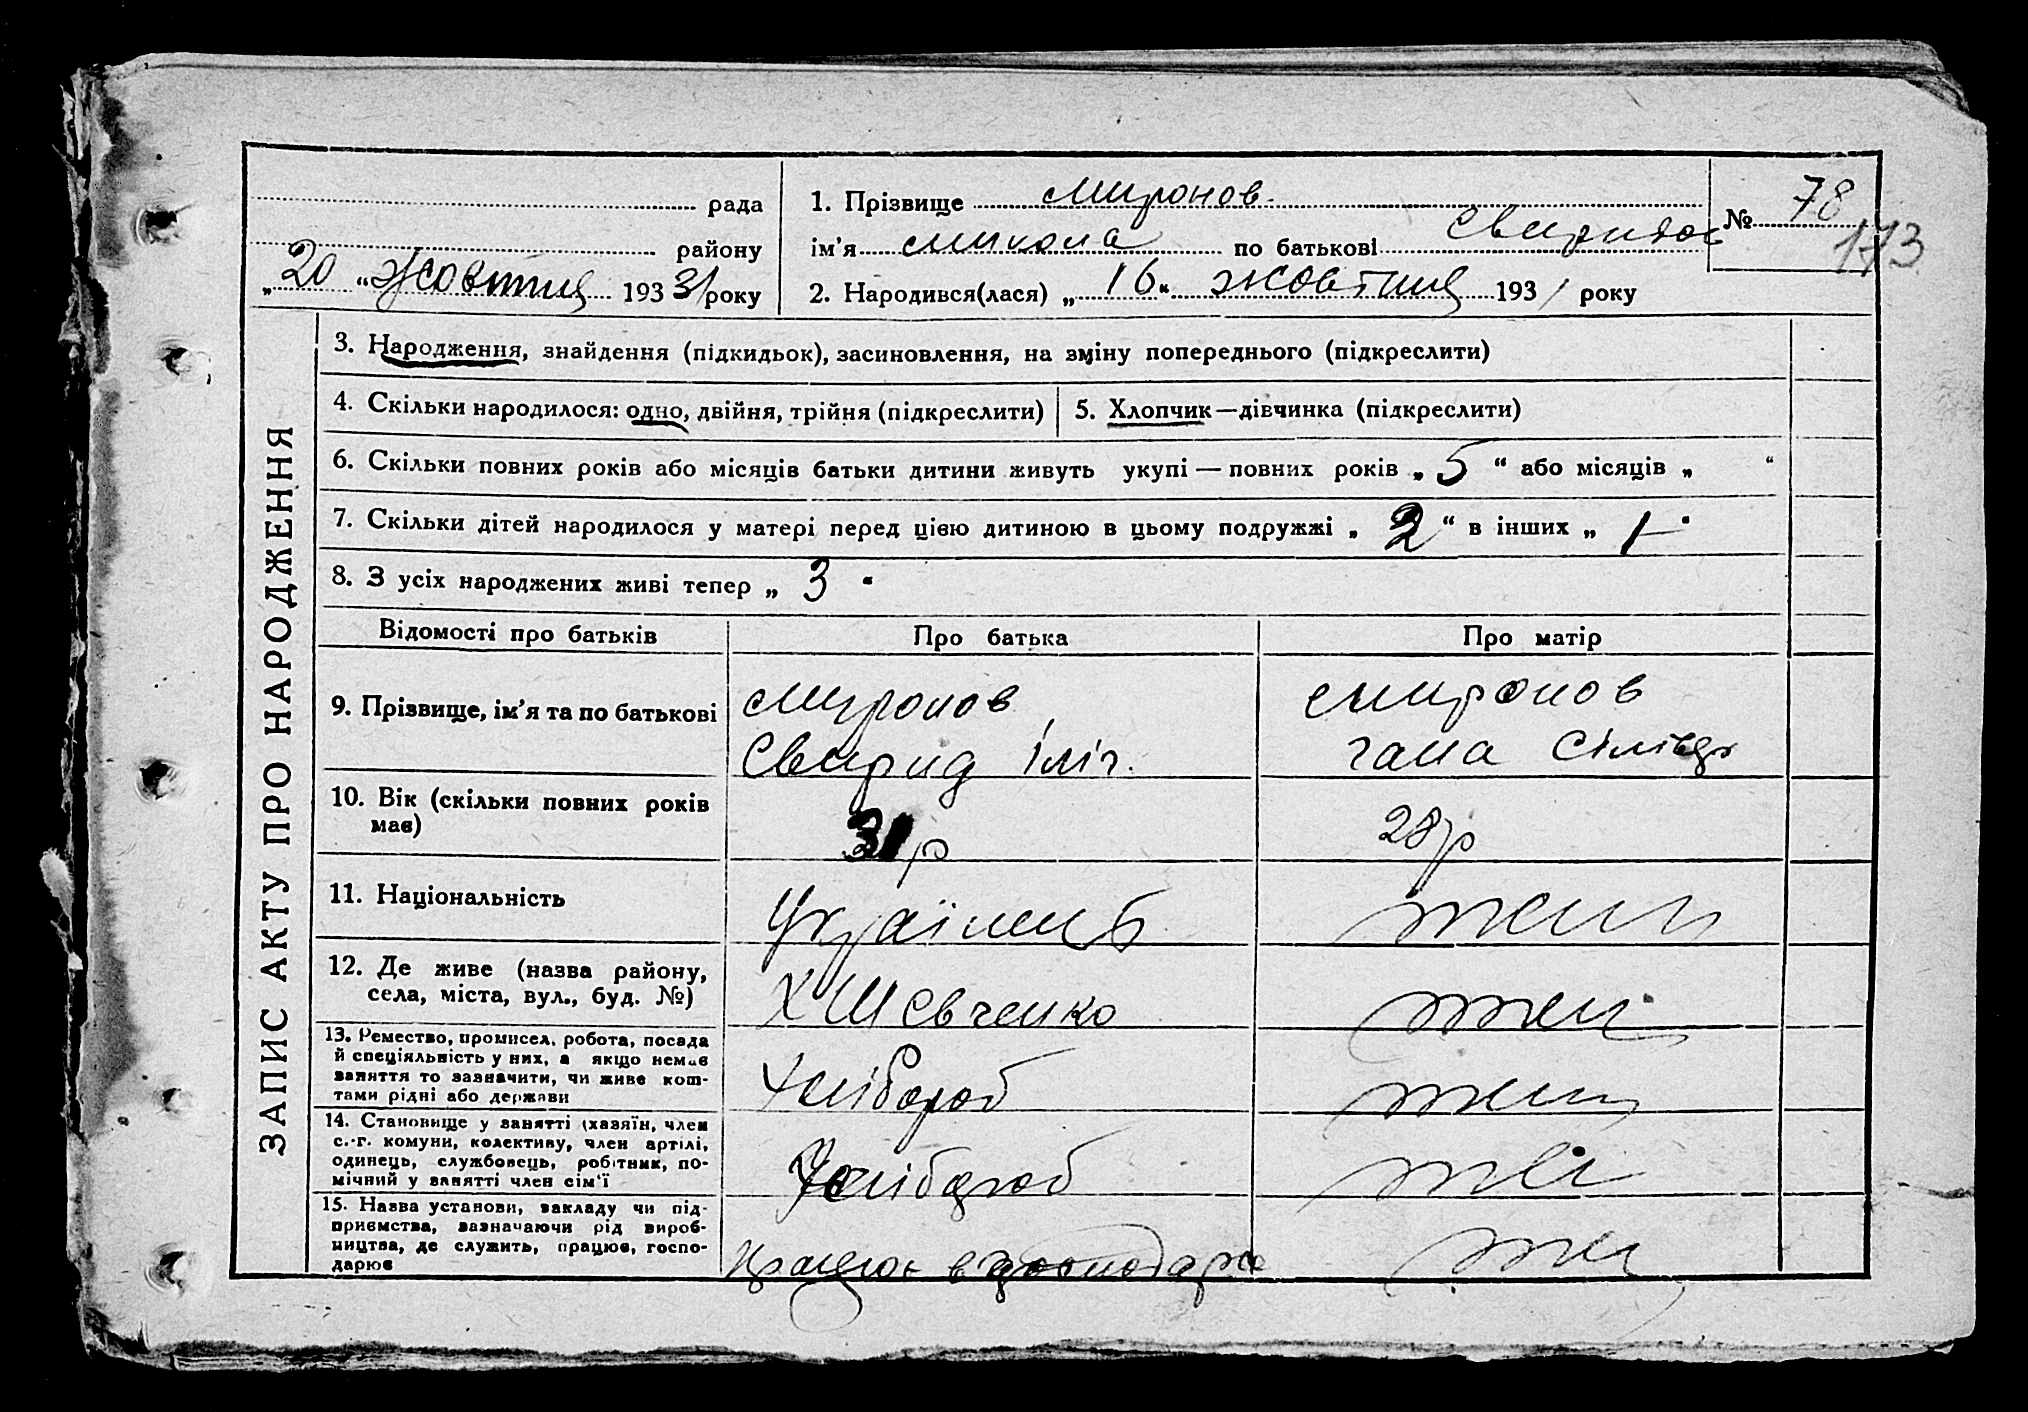 рада
району
„20“ Жовтня 1931 року
1. Прізвище Миронов
ім'я Микола по батькові Свиридов
№ 78
173
2. Народився(лася) „16“ жовтня 1931 року
ЗАПИС АКТУ ПРО НАРОДЖЕННЯ
3. Народження, знайдення (підкидьок), засиновлення, на зміну попереднього (підкреслити)
4. Скільки народилося: одно, двійня, трійня (підкреслити)
5. Хлопчик—дівчинка (підкреслити)
6. Скільки повних років або місяців батьки дитини живуть укупі — повних років „5“ або місяців „ “
7. Скільки дітей народилося у матері перед цією дитиною в цьому подружжі „2“ в інших „1“
8. З усіх народжених живі тепер „3“
Відомості про батьків Про батька Про матір
9. Прізвище, ім'я та по батькові
Миронов
Свирид Іліч.
Миронов
Гана
10. Вік (скільки повних років
має)
31 р
28 р
11. Національність
Українець
12. Де живе (назва району,
села, міста, вул., буд. №)
Х Шевченко
13. Ремество, промисел, робота, посада
й спеціяльність у них, а якщо немає
заняття то зазначити, чи живе кош-
тами рідні або держави
Хлібороб
14. Становище у занятті (хазяїн, член
с.-г. комуни, колективу, член артілі,
одинець, службовець, робітник, по-
мічний у занятті член сім'ї
Хлібороб
15. Назва установи, закладу чи під-
приємства, зазначаючи рід вироб-
ництва, де служить, працює, госпо-
дарює
Працює в господарс